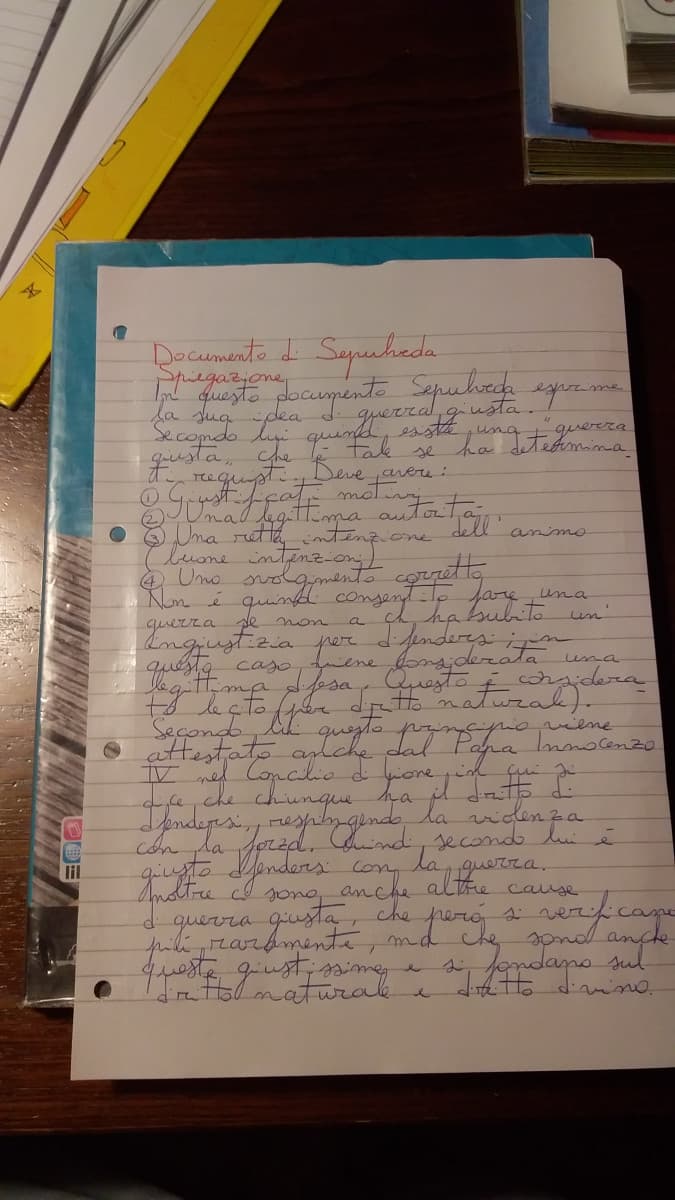 Documento di Sepulveda
Spiegazione
In questo documento Sepulveda esprime
la sua idea di guerra giusta.
Secondo lui quindi esiste una "guerra
giusta", che è tale se ha determina-
ti requisiti. Deve avere:
① Giustificati motivi
② Una legittima autorità
③ Una retta intenzione dell'animo
(buone intenzioni)
④ Uno svolgimento corretto
Non è quindi consentito fare una
guerra se non a chi ha subito un'
ingiustizia per difendersi; in
questo caso viene considerata una
legittima difesa. Questo è considera-
to lecito (per diritto naturale).
Secondo lui questo principio viene
attestato anche dal Papa Innocenzo
IV nel Concilio di Lione, in cui si
dice che chiunque ha il diritto di
difendersi, respingendo la violenza
con la forza. Quindi, secondo lui è
giusto difendersi con la guerra.
Inoltre ci sono anche altre cause
di guerra giusta, che però si verificano
più raramente, ma che sono anche
queste giustissime e si fondano sul
diritto naturale e diritto divino.
lil